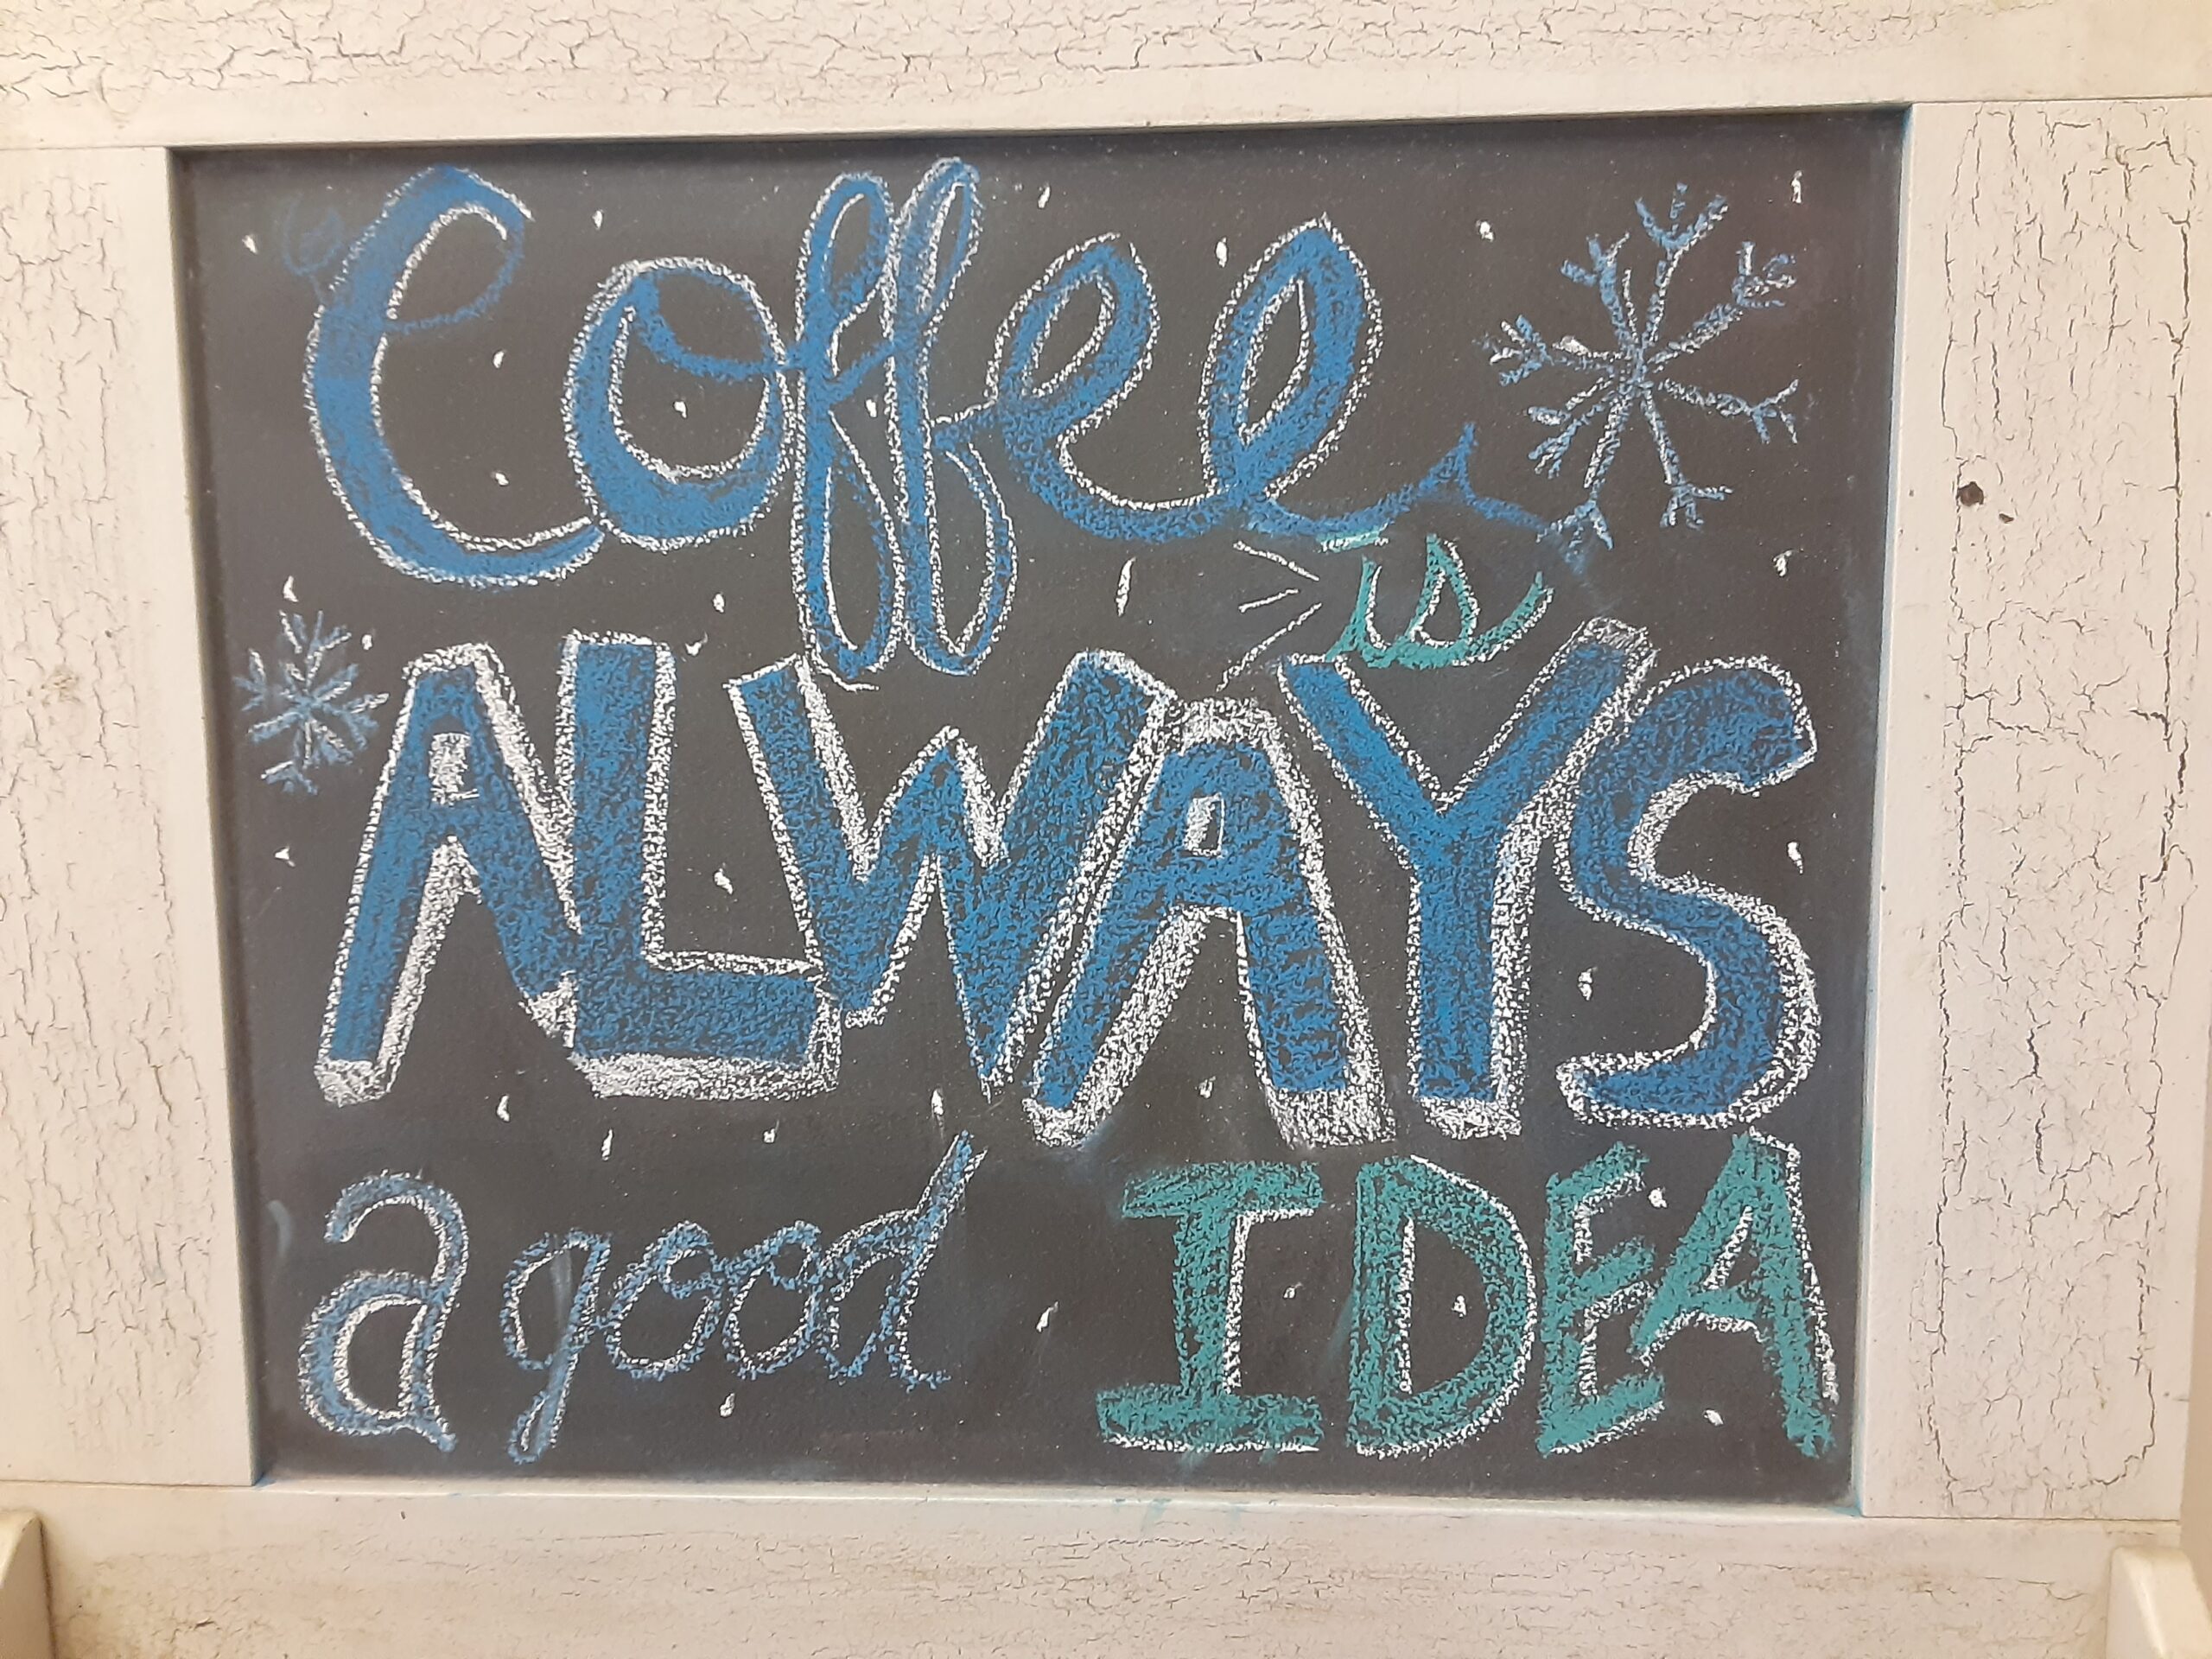 Coffee
is
ALWAYS
a good IDEA